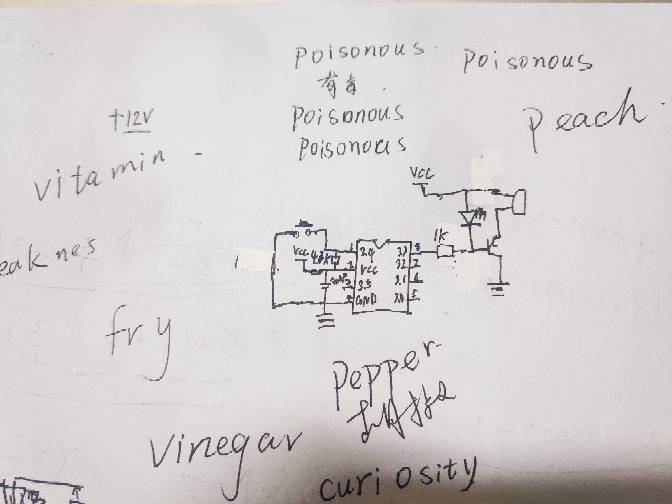 poisonous.
poisonous
有毒
+12V
poisonous
peach.
poisonous
vitamin -
VCC
eaknes
1K
VCC
3.4
3.3
VCC
3.2
3.5
3.1
GND
3.0
fry
pepper
vinegar
curiosity